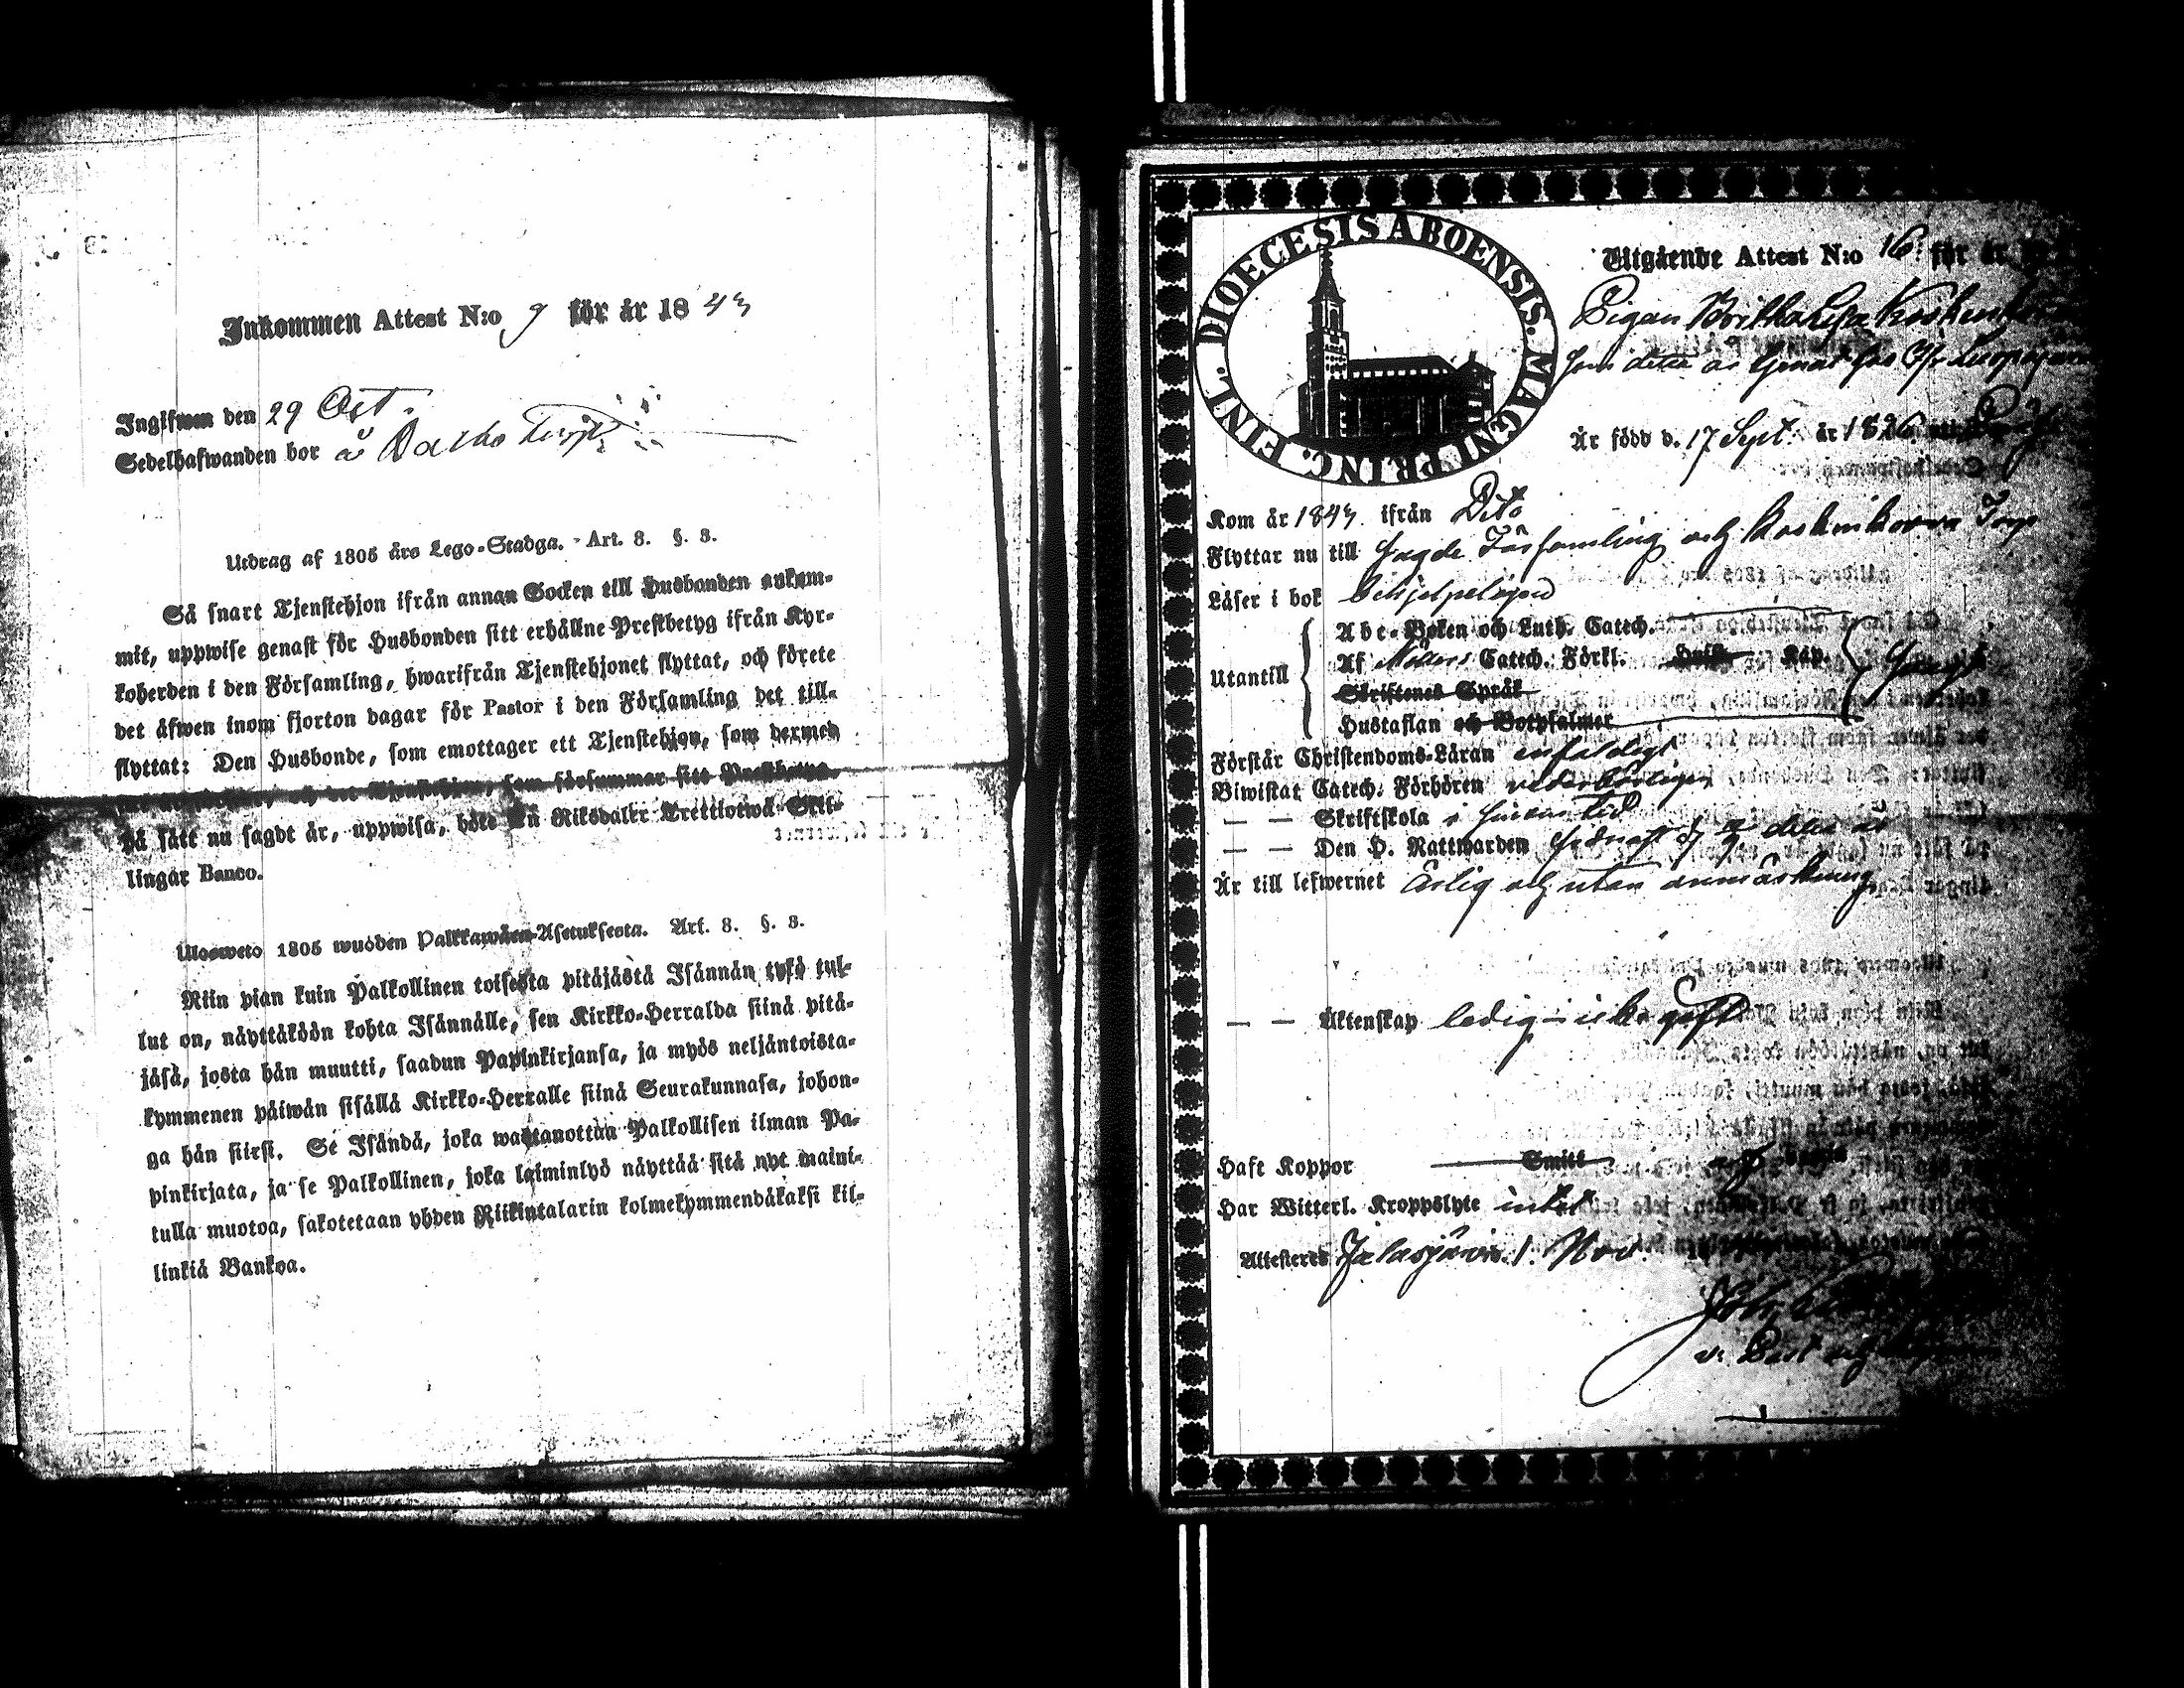 Inkommen Attest N:o 9 för år 1843
Ingifwen den 29 Oct.
Sedelhafwanden bor å
Utdrag af 1805 års Lego-Stadga. - Art. 8. §. 3.
Så snart Tjenstehjon ifrån annan Socken till Husbonden ankom-
mit, uppwise genast för Husbonden sitt erhållne Prestbetyg ifrån Kyr-
koherden i den Församling, hwarifrån Tjenstehjonet flyttat, och förete
det äfwen inom fjorton dagar för Pastor i den Församling det till-
flyttat: Den Husbonde, som emottager ett Tjenstehjon, som dermed
Tjenstehjon, som försummar sitt Prestbetyg,
på sätt nu sagdt är, uppwisa, böte En Riksdaler Trettiotwå Skil-
lingar Banco.
Ulosweto 1805 wuoden Palkkawäen-Asetuksesta. Art. 8. §. 3.
Niin pian kuin Palkollinen toisesta pitäjästä Isännän tykö tul-
lut on, näyttäköön kohta Isännälle, sen Kirkko-Herralda siinä pitä-
jäsä, josta hän muutti, saadun Papinkirjansa, ja myös neljäntoista-
kymmenen päiwän sisällä Kirkko-Herralle siinä Seurakunnasa, johon-
ga hän siirsi. Se Isändä, joka wastanottaa Palkollisen ilman Pa-
pinkirjata, ja se Palkollinen, joka laiminlyö näyttää sitä nyt maini-
tulla muotoa, sakotetaan yhden Riikintalarin kolmekymmendäkaksi kil-
linkiä Bankoa.
DIOECESIS ABOENSIS. MAGNI PRINC. FINL.
Utgående Attest N:o 16 för år
Pigan Britha Lisa
Är född d. 17 Sept. år 1826
Kom år 1843 ifrån Dito
Flyttar nu till sagde Församling och Koskenkorva Torp
Läser i bok
Utantill
Abc-Boken och Luth. Catech.
Af Möllers Catech. Förkl. Kap.
Skriftenes Språk
Hustaflan och Botpsalmer
Förstår Christendoms-Läran enfaldigt
Biwistat Catech. Förhören wederbörligen
— — Skriftskola i sinom tid
— — Den H. Nattwarden sednast d. detta år
Är till lefwernet ärlig och utan anmärkning
— — Äktenskap ledig icke gift
Haft Koppor Smitt
Har Witterl. Kroppslyte intet
Attesteres Jalasjärvi 1. Nov.